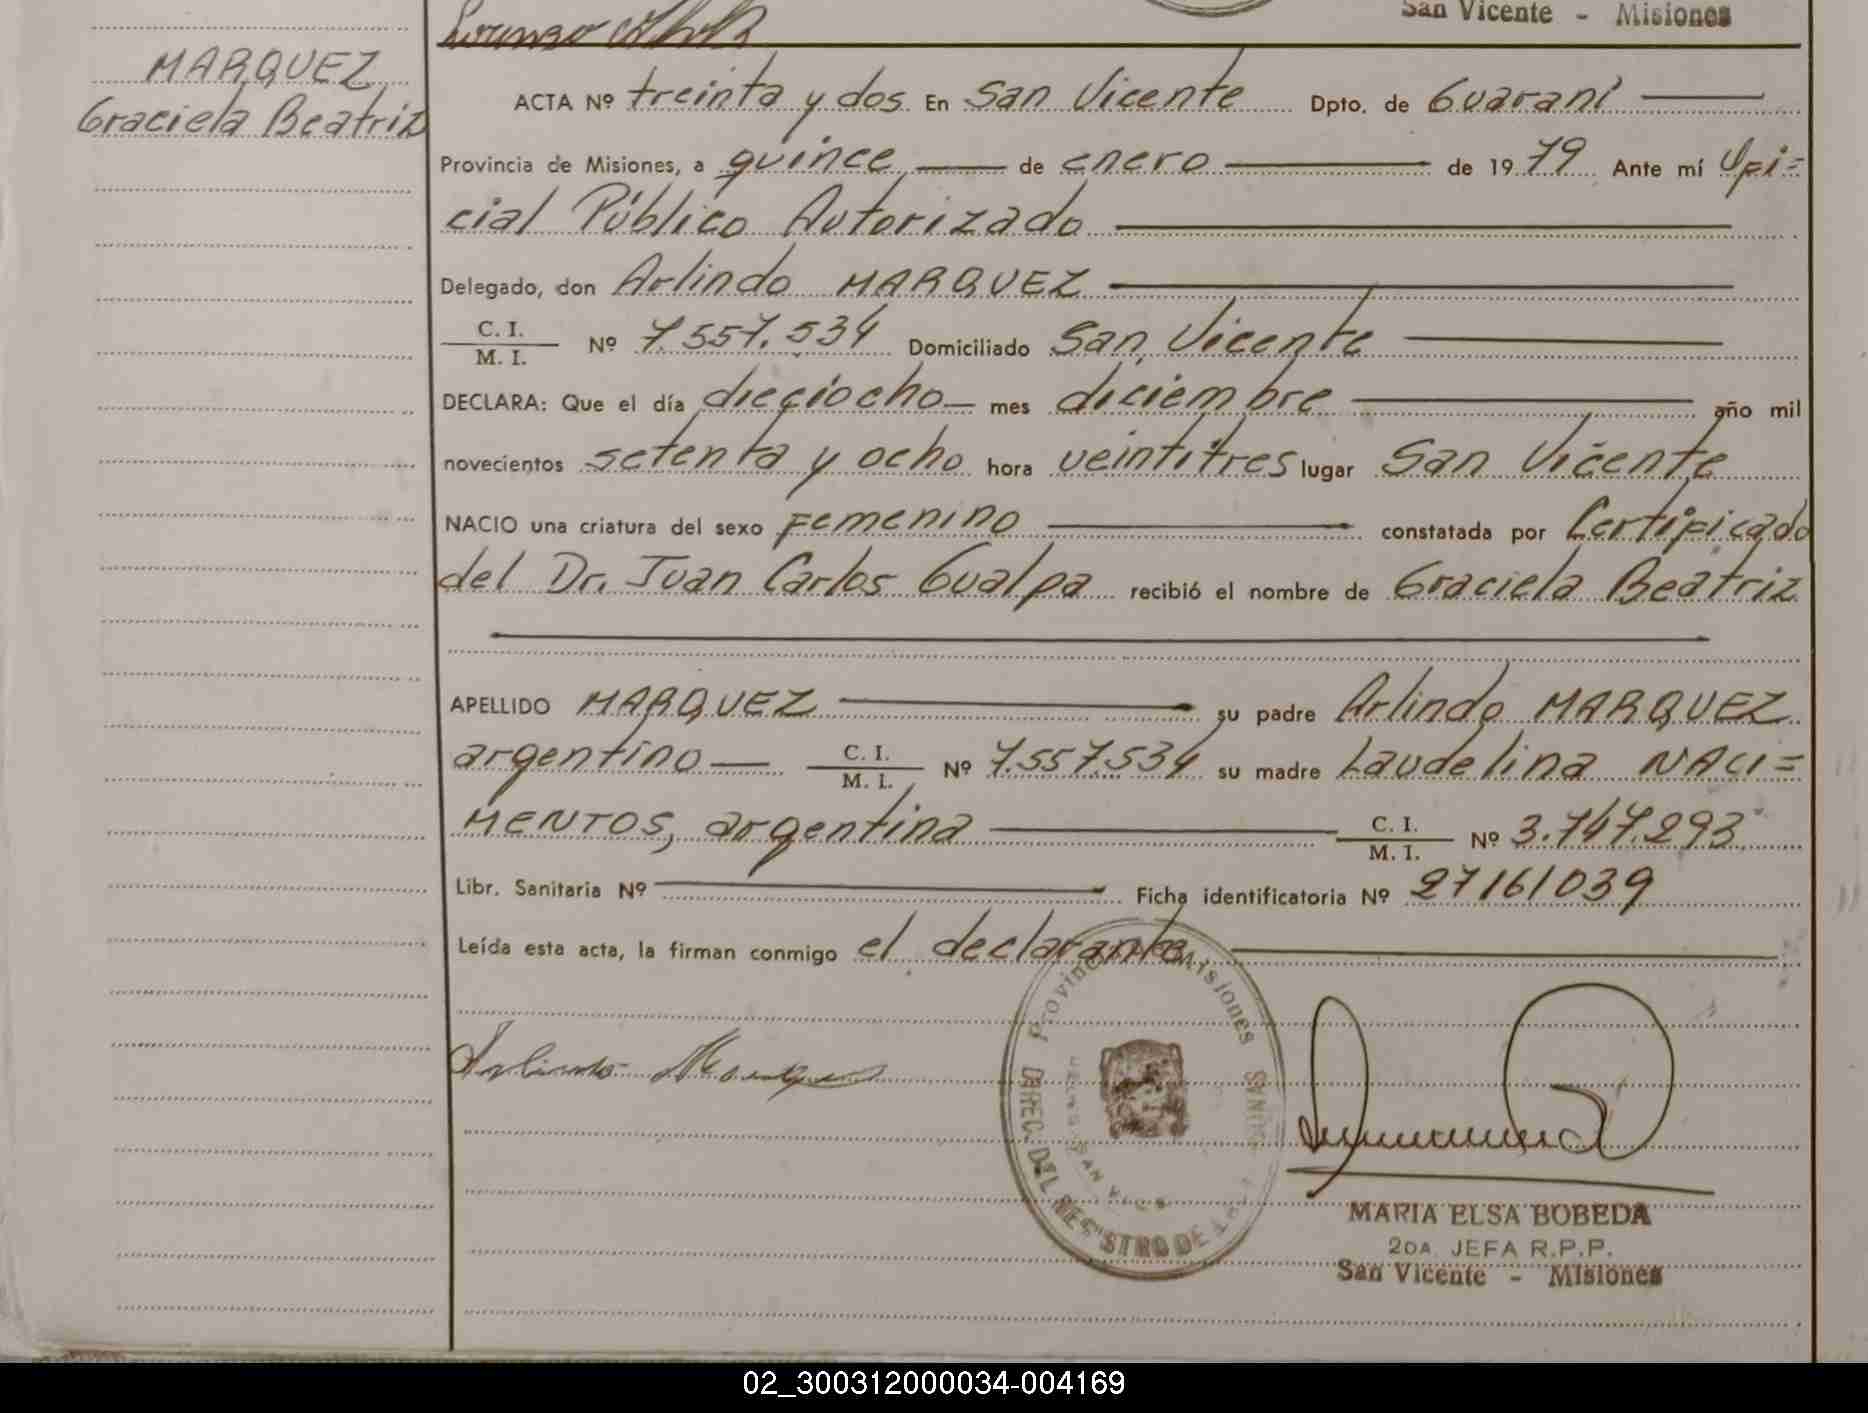 San Vicente - Misiones
MARQUEZ
Graciela Beatriz
ACTA Nº treinta y dos En San Vicente Dpto. de Guaraní
Provincia de Misiones, a quince de enero de 1979 Ante mí Ofi=
cial Público Autorizado
Delegado, don Arlindo MARQUEZ
C. I.
M. I. Nº 7.557.534 Domiciliado San Vicente
DECLARA: Que el día dieciocho mes diciembre año mil
novecientos setenta y ocho hora veintitres lugar San Vicente
NACIO una criatura del sexo Femenino constatada por Certificado
del Dr. Juan Carlos Gualpa recibió el nombre de Graciela Beatriz
APELLIDO MARQUEZ su padre Arlindo MARQUEZ
argentino C. I.
M. I. Nº 7.557.534 su madre Laudelina NACI=
MENTOS, argentina C. I.
M. I. Nº 3.747.293
Libr. Sanitaria Nº Ficha identificatoria Nº 27161039
Leída esta acta, la firman conmigo el declarante
Arlindo Marquez
Provincia de Misiones
DIREC. DEL REGISTRO DE
MARIA ELSA BOBEDA
2DA JEFA R.P.P.
San Vicente - Misiones
02_300312000034-004169